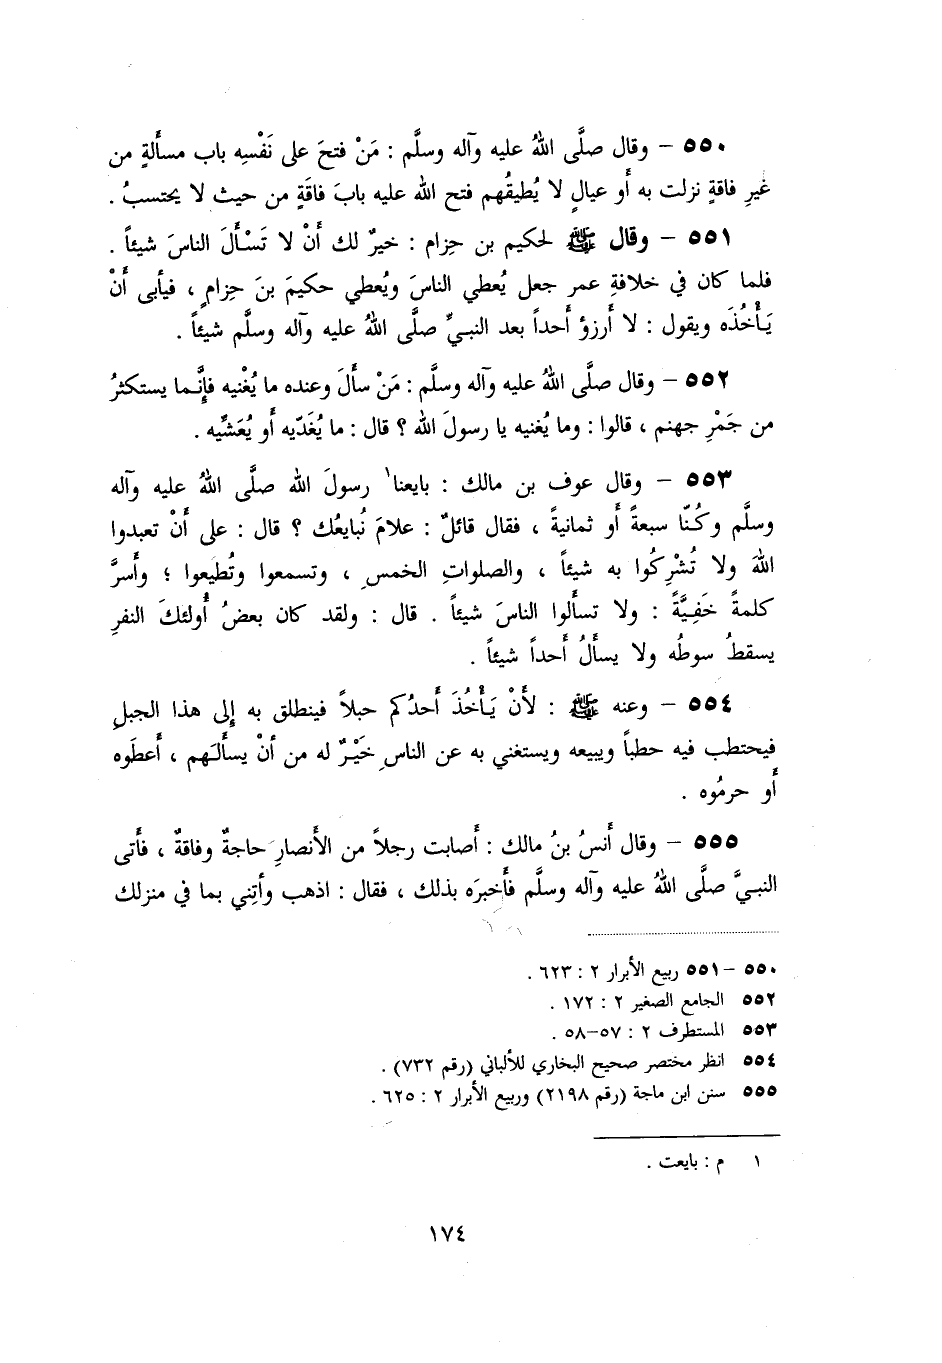 ٥٥٠ – وقال صلَّى اللهُ عليه وآله وسلَّم : مَنْ فتحَ على نَفْسِه باب مسأَلةٍ من
غيرِ فاقةٍ نزلت به أَو عيالٍ لا يُطيقُهم فتح الله عليه بابَ فاقَةٍ من حيث لا يحتسبُ .
٥٥١ – وقال ﷺ لحكيم بن حِزام : خيرٌ لك أَنْ لا تَسْأَلَ الناسَ شيئاً .
فلما كان في خلافةِ عمر جعل يُعطي الناسَ ويُعطي حكيمَ بنَ حِزامٍ ، فيأبى أَنْ
يَأْخُذَه ويقول : لا أَرزؤ أَحداً بعد النبيِّ صلَّى اللهُ عليه وآله وسلَّم شيئاً .
٥٥٢ – وقال صلَّى اللهُ عليه وآله وسلَّم : مَنْ سأَلَ وعنده ما يُغْنيه فإِنَّما يستكثرُ
من جَمْرِ جهنم ، قالوا : وما يُغنيه يا رسولَ الله ؟ قال : ما يُغَدّيه أَو يُعَشّيه .
٥٥٣ – وقال عوف بن مالك : بايعنا١ رسولَ الله صلَّى اللهُ عليه وآله
وسلَّم وكُنّا سبعةً أَو ثمانيةً ، فقال قائلٌ : علامَ نُبايعُك ؟ قال : على أَنْ تعبدوا
اللهَ ولا تُشْرِكُوا به شيئاً ، والصلواتِ الخمسِ ، وتسمعوا وتُطيعوا ؛ وأَسرَّ
كلمةً خَفِيَّةً : ولا تسأَلوا الناسَ شيئاً . قال : ولقد كان بعضُ أُولئكَ النفرِ
يسقطُ سوطُه ولا يسأَلُ أَحداً شيئاً .
٥٥٤ – وعنه ﷺ : لأَنْ يَأْخُذَ أَحدُكم حبلاً فينطلق به إِلى هذا الجبلِ
فيحتطب فيه حطباً ويبيعه ويستغني به عن الناسِ خَيْرٌ له من أنْ يسأَلَهم ، أَعطَوه
أَو حرمُوه .
٥٥٥ – وقال أَنسُ بنُ مالك : أَصابت رجلاً من الأَنصارِ حاجةٌ وفاقةٌ ، فأَتى
النبيَّ صلَّى اللهُ عليه وآله وسلَّم فأَخبرَه بذلك ، فقال : اذهب وأتِني بما في منزلك
٥٥٠ –٥٥١ ربيع الأبرار ٢ : ٦٢٣ .
٥٥٢ الجامع الصغير ٢ : ١٧٢ .
٥٥٣ المستطرف ٢ : ٥٧–٥٨ .
٥٥٤ انظر مختصر صحيح البخاري للألباني (رقم ٧٣٢) .
٥٥٥ سنن ابن ماجة (رقم ٢١٩٨) وربيع الأبرار ٢ : ٦٢٥ .
١ م : بايعت .
١٧٤